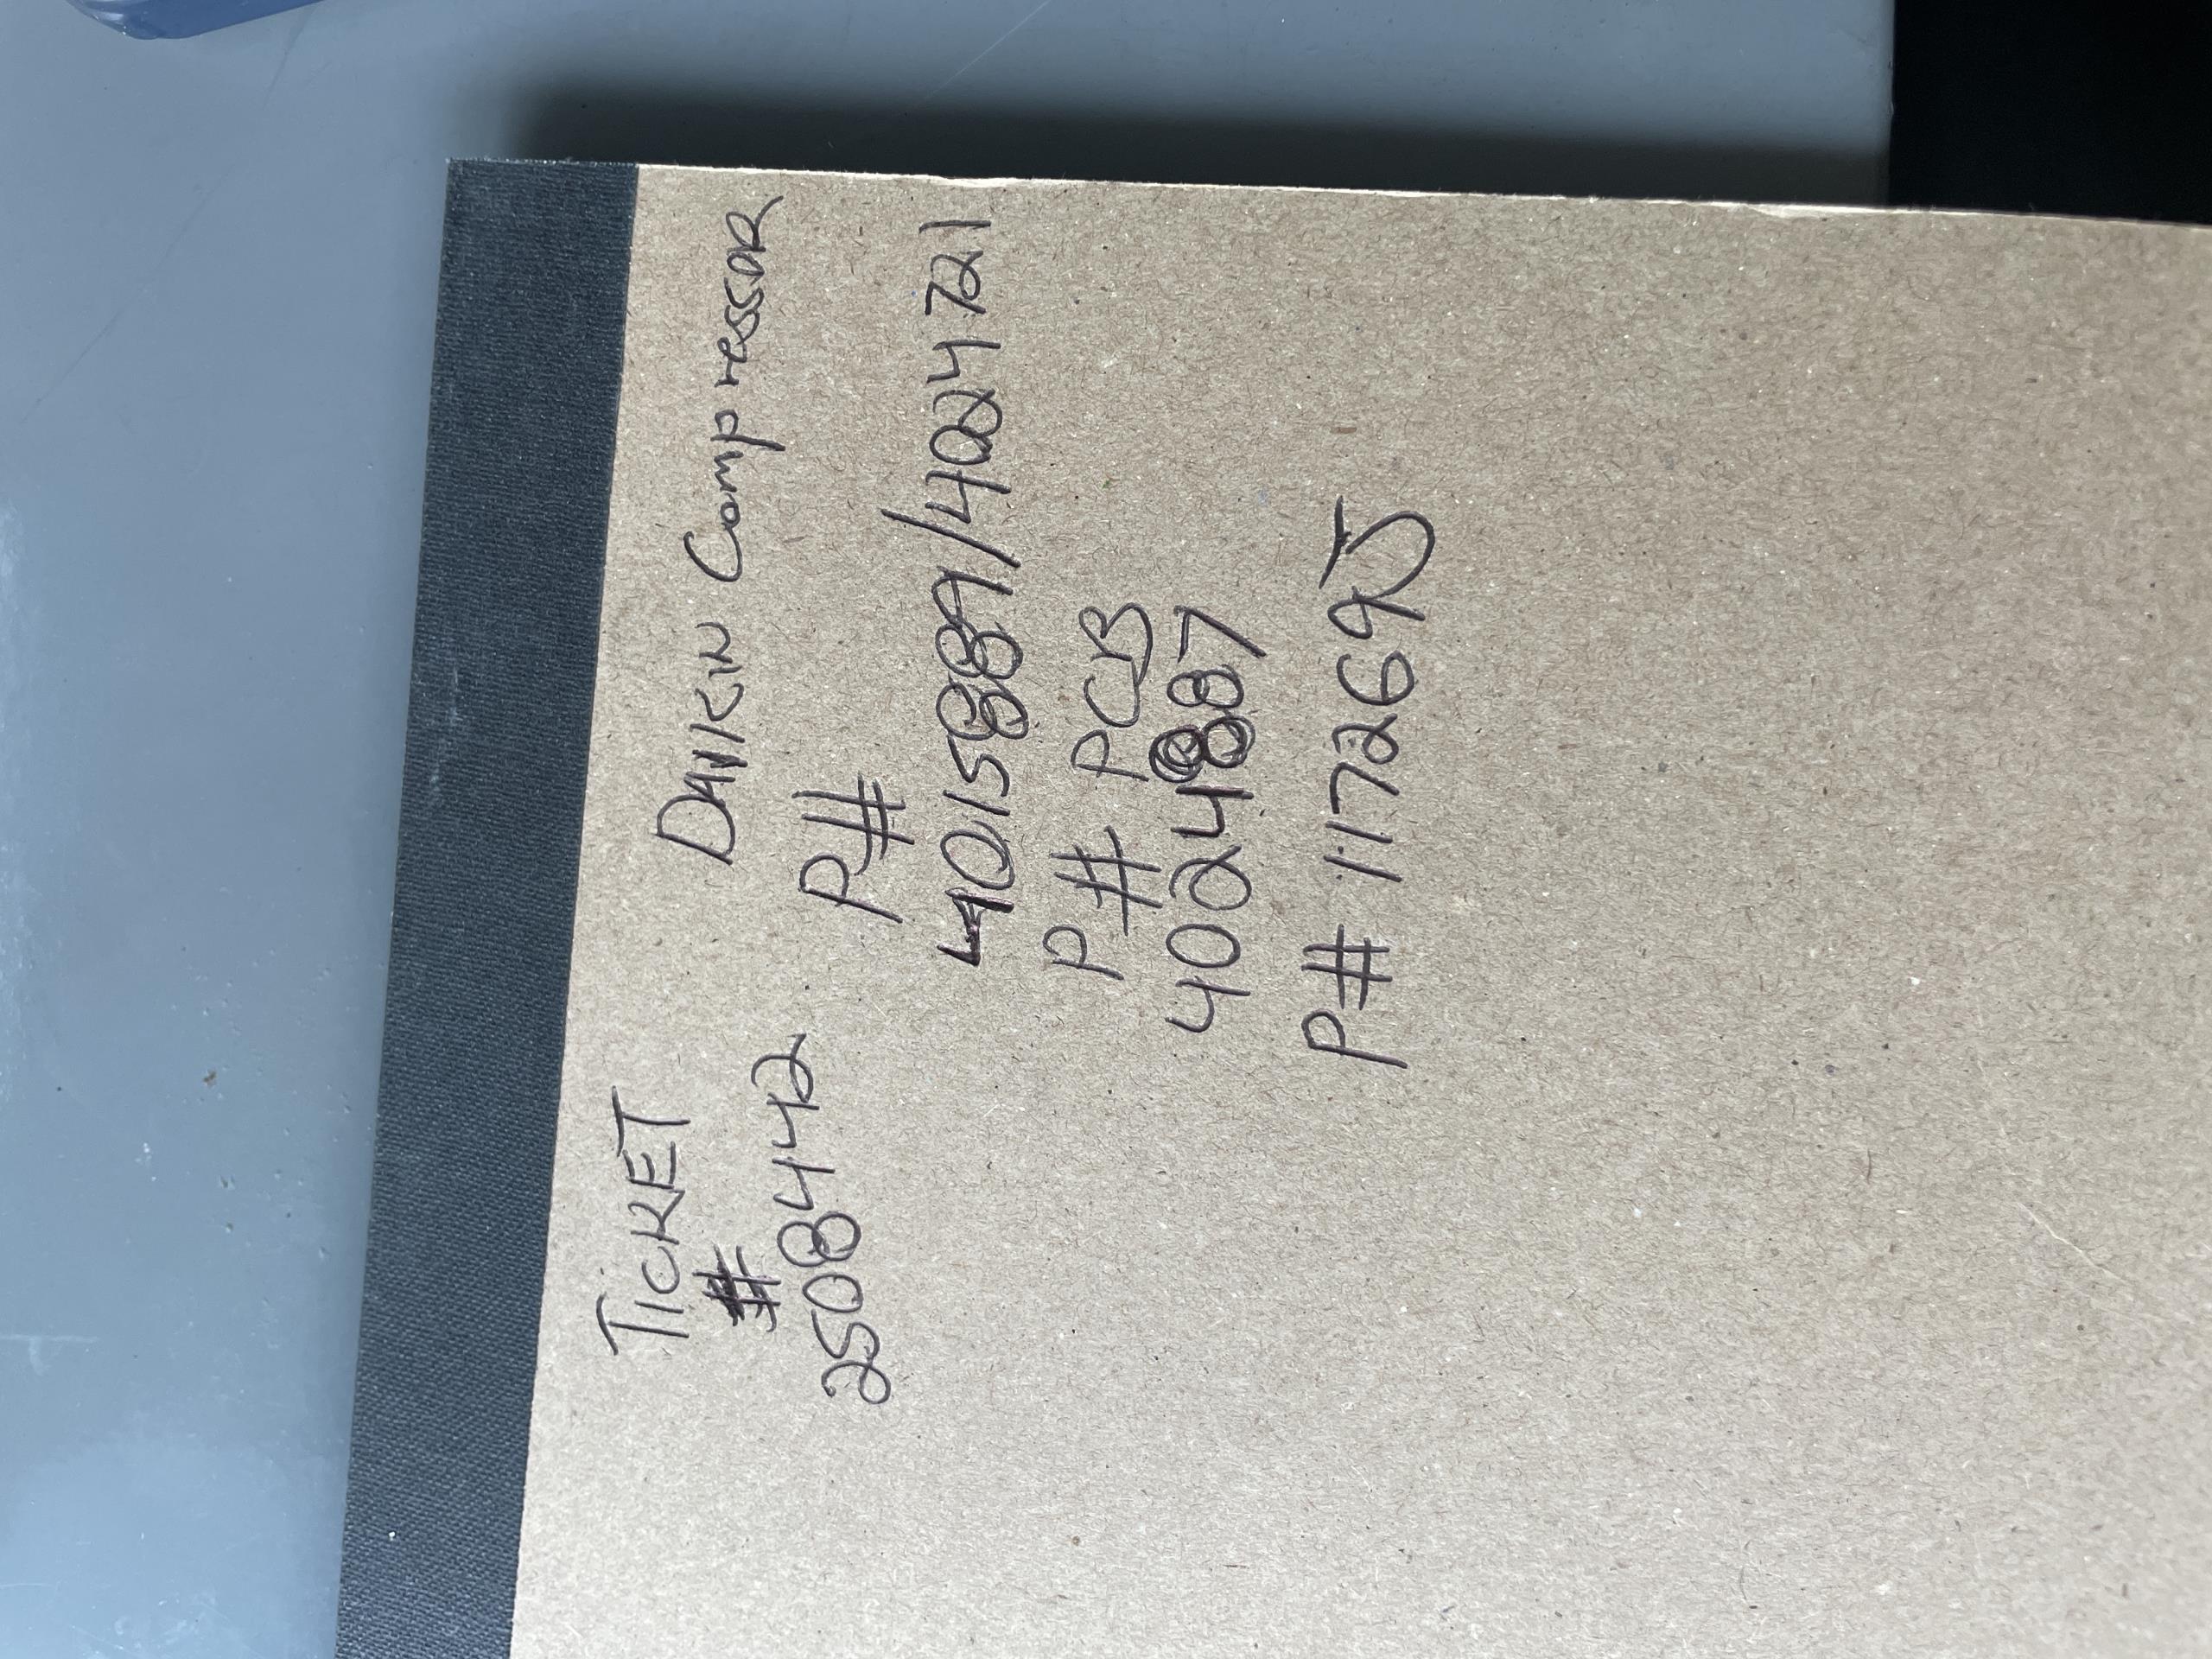 TICKET
#
2508442
DAIKIN Compressor
P#
4015889/4024721
P# PCB
4024887
P# 117269J